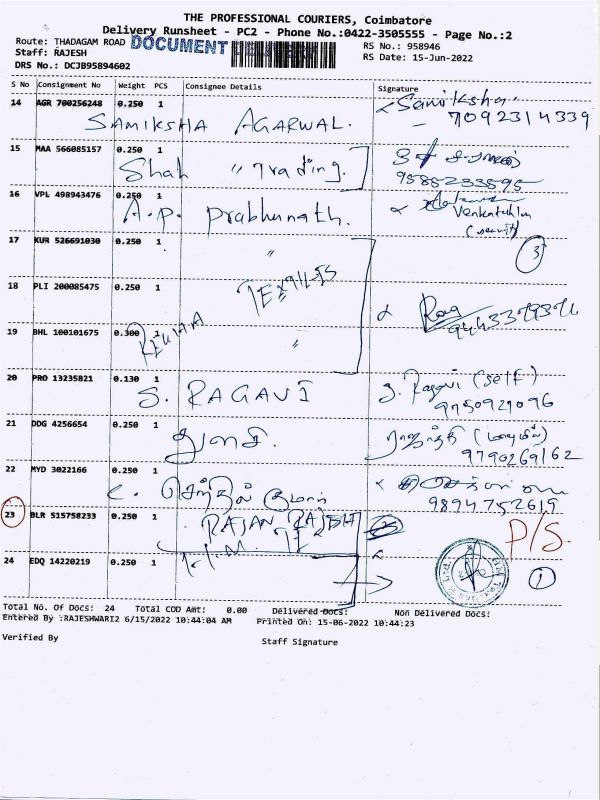 THE PROFESSIONAL COURIERS, Coimbatore
Delivery Runsheet - PC2 - Phone No.:0422-3505555 - Page No.:2
Route: THADAGAM ROAD DOCUMENT RS No.: 958946
Staff: RAJESH RS Date: 15-Jun-2022
DRS No.: DCJB95894602
S No Consignment No Weight PCS Consignee Details Signature
14 AGR 700256248 0.250 1 Samiksha
SAMIKSHA AGARWAL. 7092314339
15 MAA 566085157 0.250 1
Shah " Trading.
16 VPL 498943476 0.250 1
A.P. Prabhunath. Venkatachalam
(security)
17 KUR 526691030 0.250 1 " 3
18 PLI 200085475 0.250 1
REKHA TEXTILES
19 BHL 100101675 0.300 1 "
20 PRO 13235821 0.130 1 S. Ragavi (self)
S. RAGAVI 9750921096
21 DDG 4256654 0.250 1
துளசி. 9790269162
22 MYD 3022166 0.250 1
செந்தில் குமார் 9894752619
23 BLR 515758233 0.250 1 RAJAN P/S.
24 EDQ 14220219 0.250 1 1
Total No. Of Docs: 24 Total COD Amt: 0.00 Delivered Docs: Non Delivered Docs:
Entered By :RAJESHWARI2 6/15/2022 10:44:04 AM Printed On: 15-06-2022 10:44:23
Verified By Staff Signature